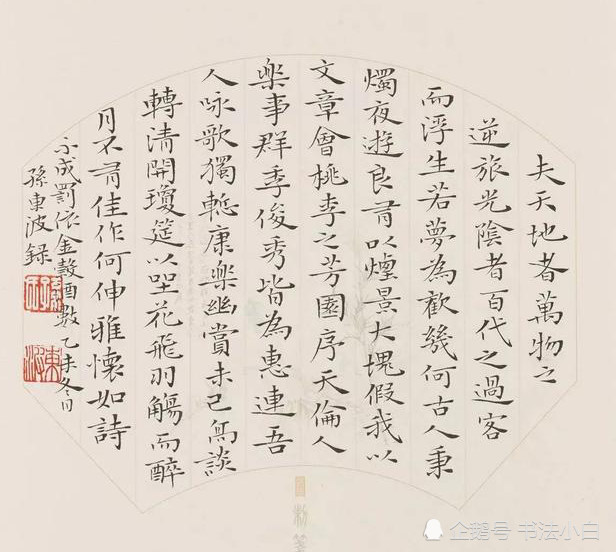 夫天地者萬物之
逆旅光陰者百代之過客
而浮生若夢為歡幾何古人秉
燭夜遊良有以煙景大塊假我以
文章會桃李之芳園序天倫人
樂事群季俊秀皆為惠連吾
人咏歌獨慙康樂幽賞未已高談
轉清開瓊筵以坐花飛羽觴而醉
月不有佳作何伸雅懷如詩
不成罰依金穀酉數乙未冬日
孫東波録
企鹅号 书法小白